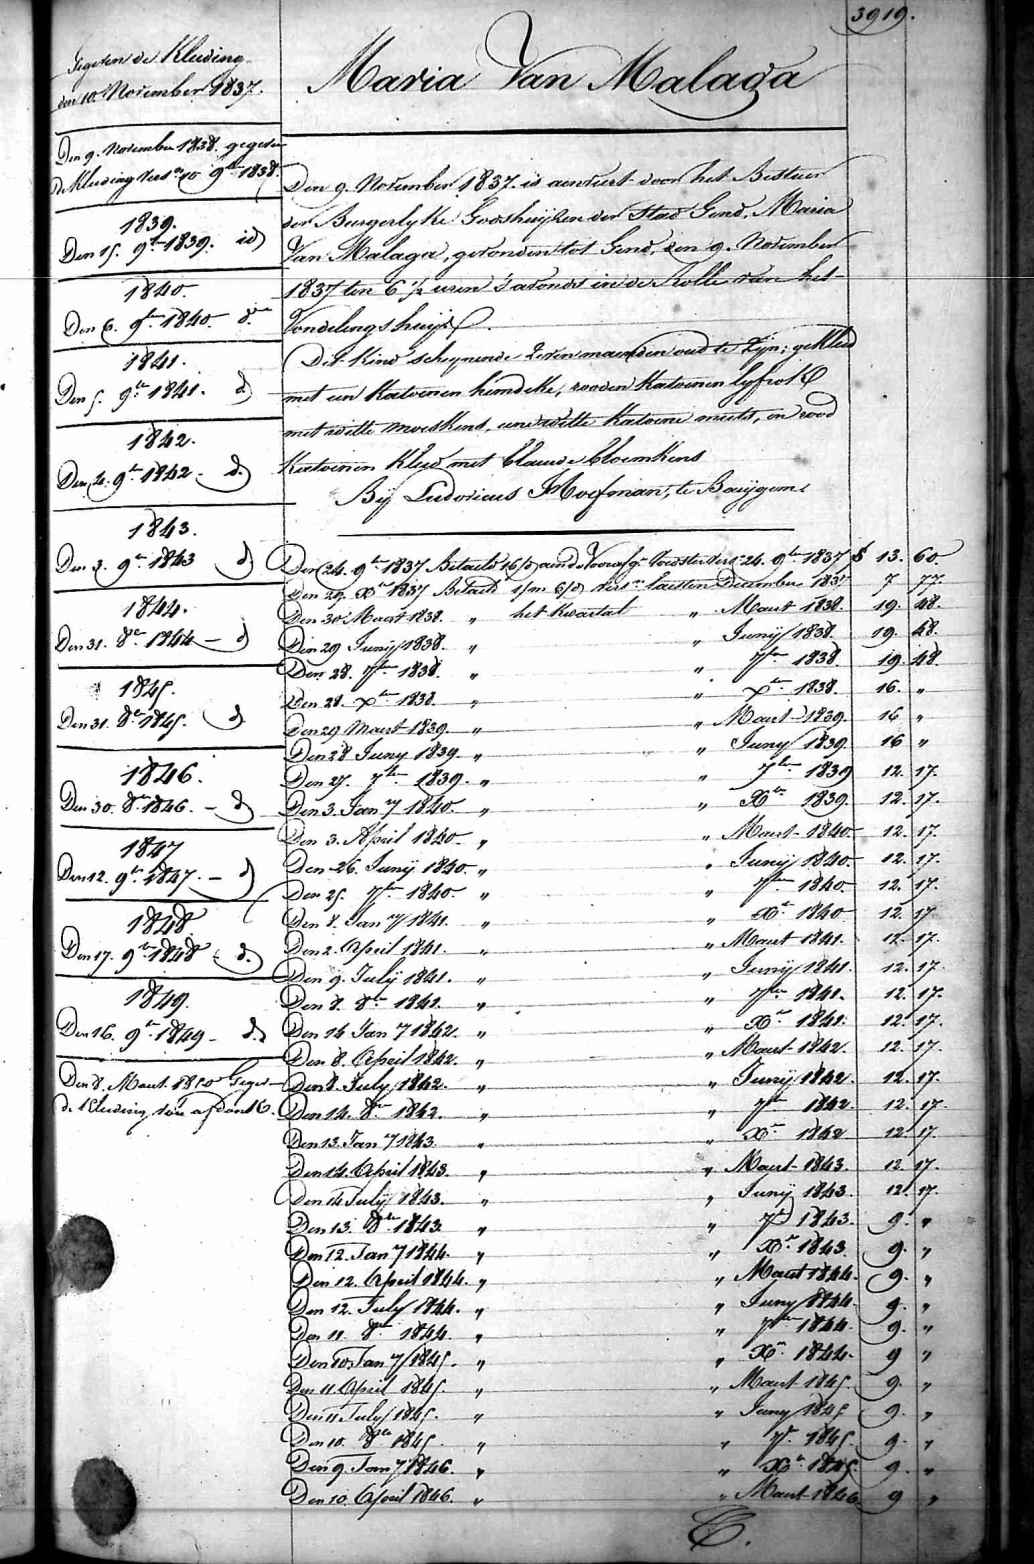 3919.
Maria Van Malaga
Gegeven de Kleeding
den 10. November 1837.
Den 9. November 1838. gegeven
de Kleeding vers. 10 9ber 1838.
1839.
Den 15. 9ber 1839. id
1840.
Den 6. 9ber 1840. d.
1841.
Den 5. 9ber 1841. d
1842.
Den 4. 9ber 1842 - d.
1843.
Den 3. 9ber 1843 d
1844.
Den 31. 8re 1844 - d
1845.
Den 31. 8re 1845. d
1846.
Den 30. 8re 1846. - d
1847
Den 12. 9ber 1847. - d
1848
Den 17. 9ber 1848 d.
1849.
Den 16. 9ber 1849 - d.
Den 8. Maart 1850 Gegev
de Kleeding
Den 9. November 1837. is aenveert door het Bestuer
der Burgerlyke Godshuijzen der Stad Gend, Maria
Van Malaga, gevonden tot Gend, den 9. November
1837 ten 6 1/2 uren s'avonds in de Rolle van het
Vondelingshuijs.
Dit Kind schynende zeven maenden oud te zyn; gekleed
met een Katoenen hemdeke, rooden Katoenen lyfrok
met witte mouwkens, eene witte Katoene muts, en rood
Katoenen Kleed met blauwe bloemkens
Bij Ludovicus Hofman, te Bauijgem.
Den 24. 9ber 1837 Betaeld 16/0 aen de Voorsg. Voedster vers. 24. 9ber 1837 $ 13. 60
Den 29. Xber 1837 Betaeld 1/m 6/d vers. laesten December 1837 7 77
Den 30 Maert 1838. " het Kwartael " Maert 1838. 19. 48.
Den 29 Junij 1838. " " Junij 1838. 19. 48.
Den 28. 7ber 1838. " " 7ber 1838 19. 48.
Den 28. Xber 1838. " " Xber 1838. 16. "
Den 29 Maert 1839. " " Maert 1839. 16 "
Den 28 Juny 1839. " " Juny 1839. 16 "
Den 27. 7ber 1839. " " 7ber 1839 12. 17.
Den 3. Jany 1840. " " Xber 1839 12. 17.
Den 3. April 1840 " " Maert 1840 12. 17.
Den 26. Junij 1840. " " Junij 1840. 12. 17.
Den 25. 7ber 1840. " " 7ber 1840 12. 17.
Den 8. Jany 1841. " " Xr 1840 12. 17
Den 2. April 1841. " " Maert 1841. 12. 17.
Den 9. Julij 1841. " " Junij 1841. 12. 17.
Den 8. 8re 1841. " " 7ber 1841. 12. 17.
Den 14 Jany 1842. " " Xr 1841. 12. 17.
Den 8. April 1842. " " Maert 1842. 12. 17.
Den 8. July 1842. " " Junij 1842. 12. 17.
Den 14. 8re 1842. " " 7br 1842 12. 17.
Den 13. Jany 1843. " " Xr 1842 12. 17.
Den 14. April 1843. " " Maert 1843. 12. 17.
Den 14 Julij 1843. " " Junij 1843 12. 17.
Den 13. 8re 1843. " " 7br 1843. 9. "
Den 12. Jany 1844. " " Xr 1843. 9. "
Den 12. April 1844. " " Maert 1844. 9. "
Den 12. July 1844. " " Juny 1844. 9. "
Den 11. 8re 1844. " " 7ber 1844. 9. "
Den 10 Jany 1845. " " Xr 1844. 9 "
Den 11. April 1845. " " Maert 1845. 9. "
Den 11 July 1845. " " Juny 1845 9. "
Den 10. 8re 1845. " " 7r 1845. 9. "
Den 9. Jany 1846. " " Xr 1845. 9. "
Den 10. April 1846. " " Maert 1846 9 "